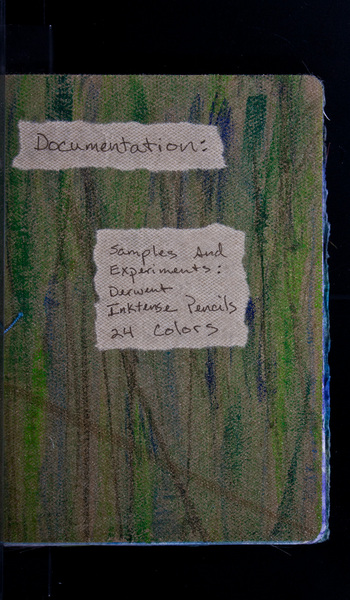 Documentation:
Samples And
Experiments:
Derwent
Inktense Pencils
24 Colors